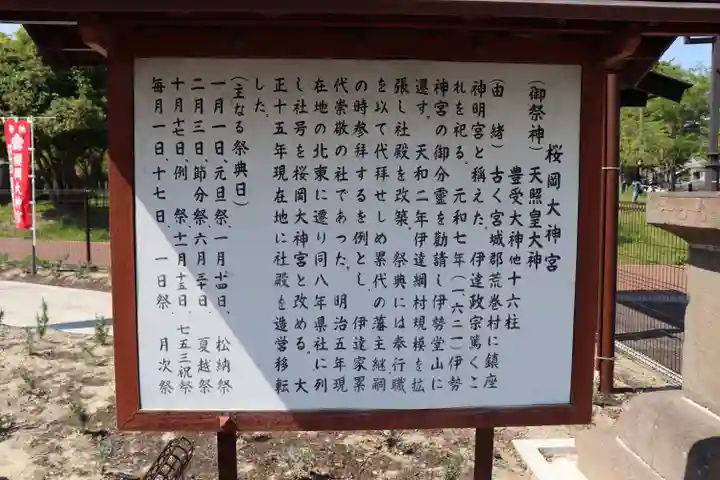 桜岡大神宮
(御祭神) 天照皇大神
豊受大神他十六柱
(由 緒) 古く宮城郡荒巻村に鎮座
神明宮と称えた。伊達政宗篤くこ
れを祀る。元和七年(一六二一)伊勢
神宮の御分霊を勧請し伊勢堂山に
遷す。天和二年伊達綱村規模を拡
張し社殿を改築。祭典には奉行職
を以て代拝せしめ累代の藩主継嗣
の時参拝するを例とし、伊達家累
代崇敬の社であった。明治五年現
在地の北東に遷り同八年県社に列
し社号を桜岡大神宮と改める。大
正十五年現在地に社殿を造営移転
した。
(主なる祭典日)
一月一日、元旦祭、一月十四日、松納祭
二月三日、節分祭 六月三十日 夏越祭
十月十七日、例 祭、十一月十五日、七五三祝祭
毎月一日、十七日、一日祭、月次祭
桜岡大神宮